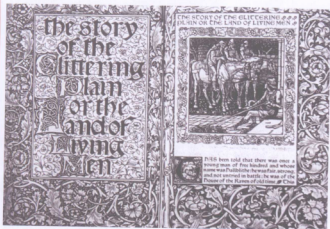 the story
of the
Glittering
Plain
or the
Land of
Living
Men
THE STORY OF THE GLITTERING
PLAIN OR THE LAND OF LIVING MEN
It has been told that there was once a
young man of free kindred and whose
name was Hallblithe: he was fair, strong,
and not untried in battle; he was of the
House of the Raven of old time. This